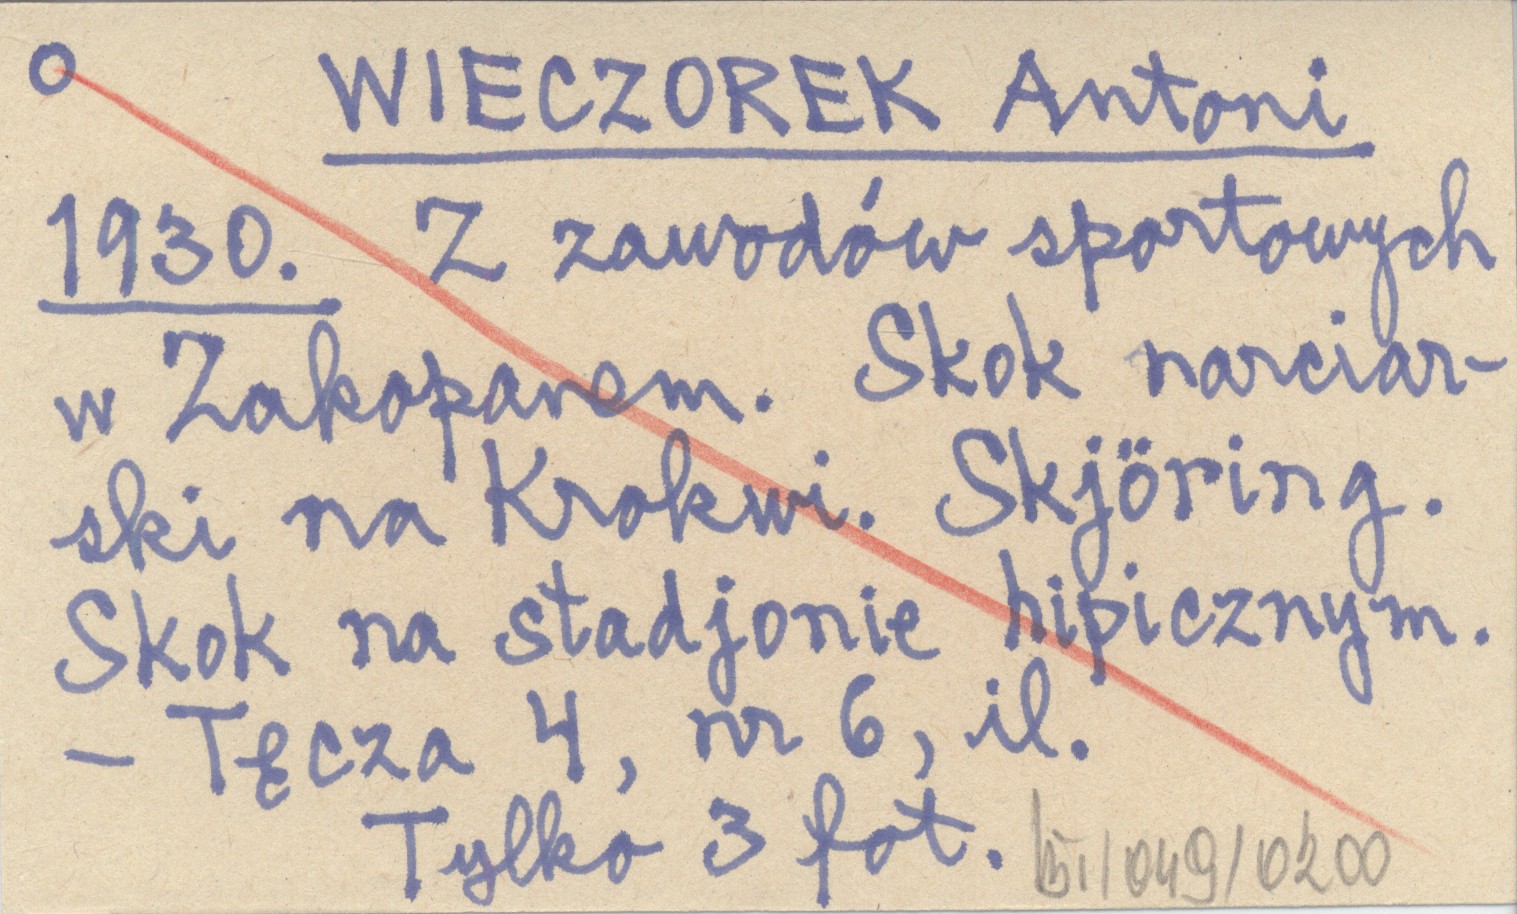 O WIECZOREK Antoni
1930. Z zawodów sportowych
w Zakopanem. Skok narciar-
ski na Krokwi. Skjöring.
Skok na stadjonie hipicznym.
– Tęcza 4, nr 6, il.
Tylko 3 fot. /049/0200